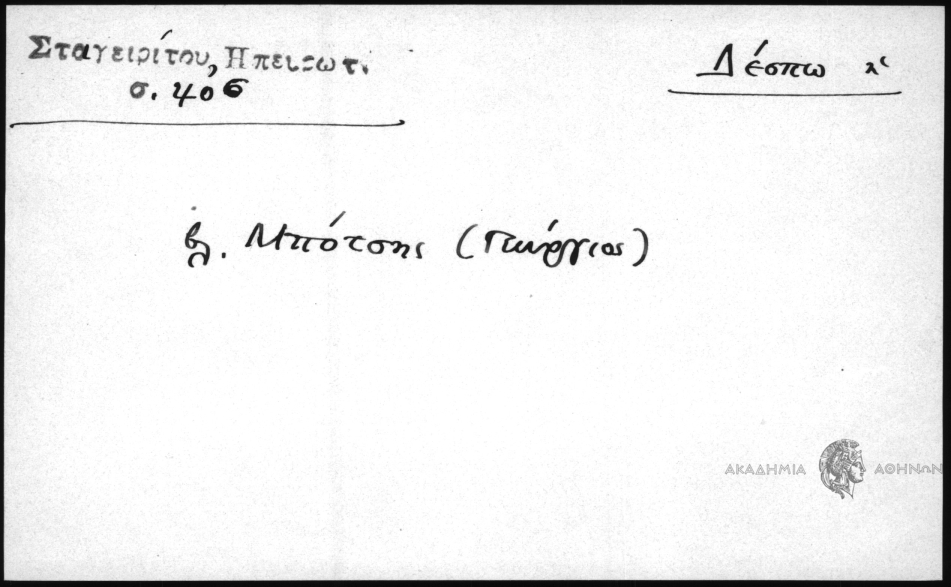 Σταγειρίτου, Ηπειρωτ.
σ. 406
Δέσπω
βλ. Μπότσης (Γεώργιος)
ΑΚΑΔΗΜΙΑ ΑΘΗΝΩΝ